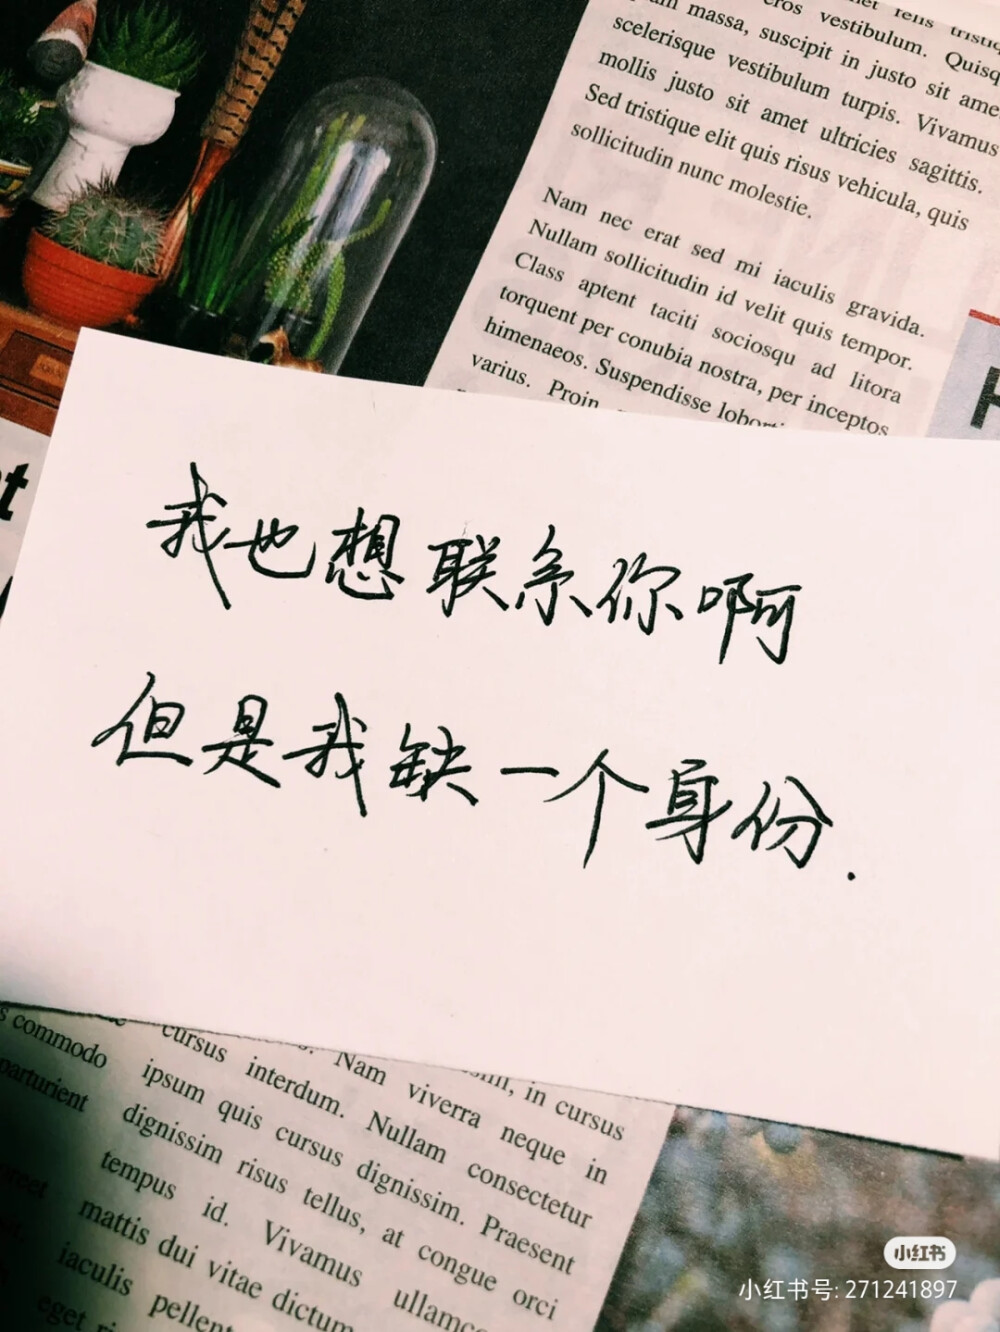 met felis tristiq
eros vestibulum. Quisq
massa, suscipit in justo sit ame
scelerisque vestibulum turpis. Vivamus
mollis justo sit amet ultricies sagittis.
Sed tristique elit quis risus vehicula, quis
sollicitudin nunc molestie.
Nam nec erat sed mi iaculis gravida.
Nullam sollicitudin id velit quis tempor.
Class aptent taciti sociosqu ad litora
torquent per conubia nostra, per inceptos
himenaeos. Suspendisse loborti
varius. Proin
H
t
我也想联系你啊
但是我缺一个身份.
s commodo
parturient
cursus interdum. Nam viverra neque in
in cursus
ipsum quis cursus dignissim. Nullam consectetur
dignissim risus tellus, at congue orci
Praesent
tempus id. Vivamus ullamc
mattis dui vitae dictum
iaculis pellent
eget
小红书
小红书号: 271241897